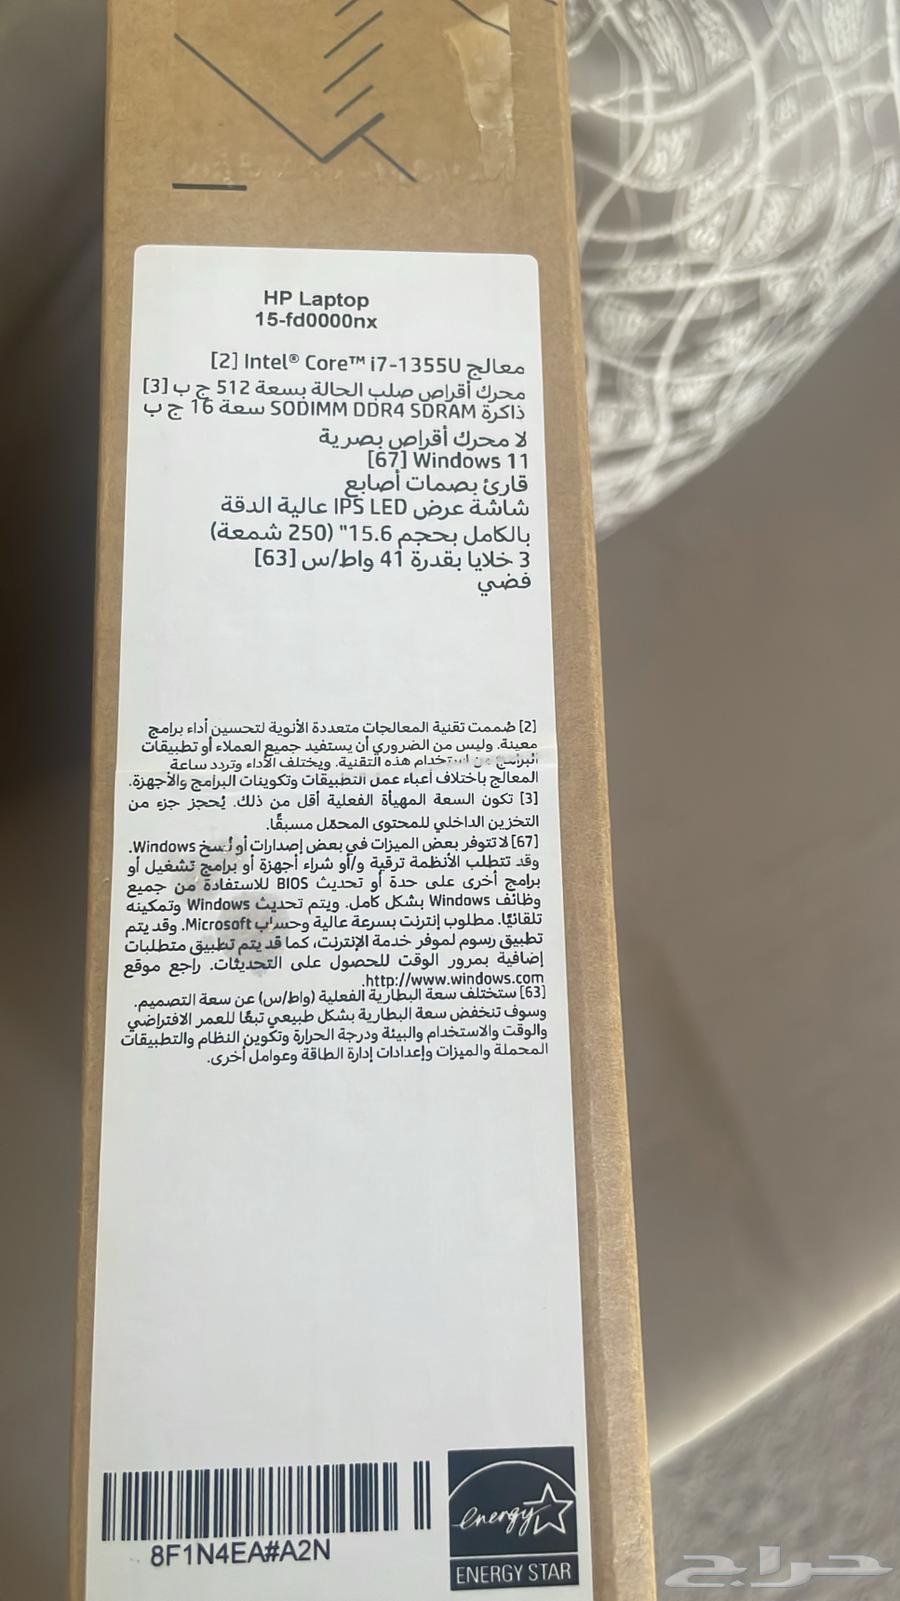 HP Laptop
15-fd0000nx
معالج Intel® Core™ i7-1355U [2]
محرك أقراص صلب الحالة بسعة 512 ج ب [3]
ذاكرة SODIMM DDR4 SDRAM سعة 16 ج ب
لا محرك أقراص بصرية
Windows 11 [67]
قارئ بصمات أصابع
شاشة عرض IPS LED عالية الدقة
بالكامل بحجم 15.6" (250 شمعة)
3 خلايا بقدرة 41 واط/س [63]
فضي
[2] صُممت تقنية المعالجات متعددة الأنوية لتحسين أداء برامج
معينة. وليس من الضروري أن يستفيد جميع العملاء أو تطبيقات
البرامج من استخدام هذه التقنية. ويختلف الأداء وتردد ساعة
المعالج باختلاف أعباء عمل التطبيقات وتكوينات البرامج والأجهزة.
[3] تكون السعة المهيأة الفعلية أقل من ذلك. يُحجز جزء من
التخزين الداخلي للمحتوى المحمّل مسبقًا.
[67] لا تتوفر بعض الميزات في بعض إصدارات أو نُسخ Windows.
وقد تتطلب الأنظمة ترقية و/أو شراء أجهزة أو برامج تشغيل أو
برامج أخرى على حدة أو تحديث BIOS للاستفادة من جميع
وظائف Windows بشكل كامل. ويتم تحديث Windows وتمكينه
تلقائيًا. مطلوب إنترنت بسرعة عالية وحساب Microsoft. وقد يتم
تطبيق رسوم لموفر خدمة الإنترنت، كما قد يتم تطبيق متطلبات
إضافية بمرور الوقت للحصول على التحديثات. راجع موقع
http://www.windows.com.
[63] ستختلف سعة البطارية الفعلية (واط/س) عن سعة التصميم.
وسوف تنخفض سعة البطارية بشكل طبيعي تبعًا للعمر الافتراضي
والوقت والاستخدام والبيئة ودرجة الحرارة وتكوين النظام والتطبيقات
المحملة والميزات وإعدادات إدارة الطاقة وعوامل أخرى.
8F1N4EA#A2N
energy
ENERGY STAR
حراج